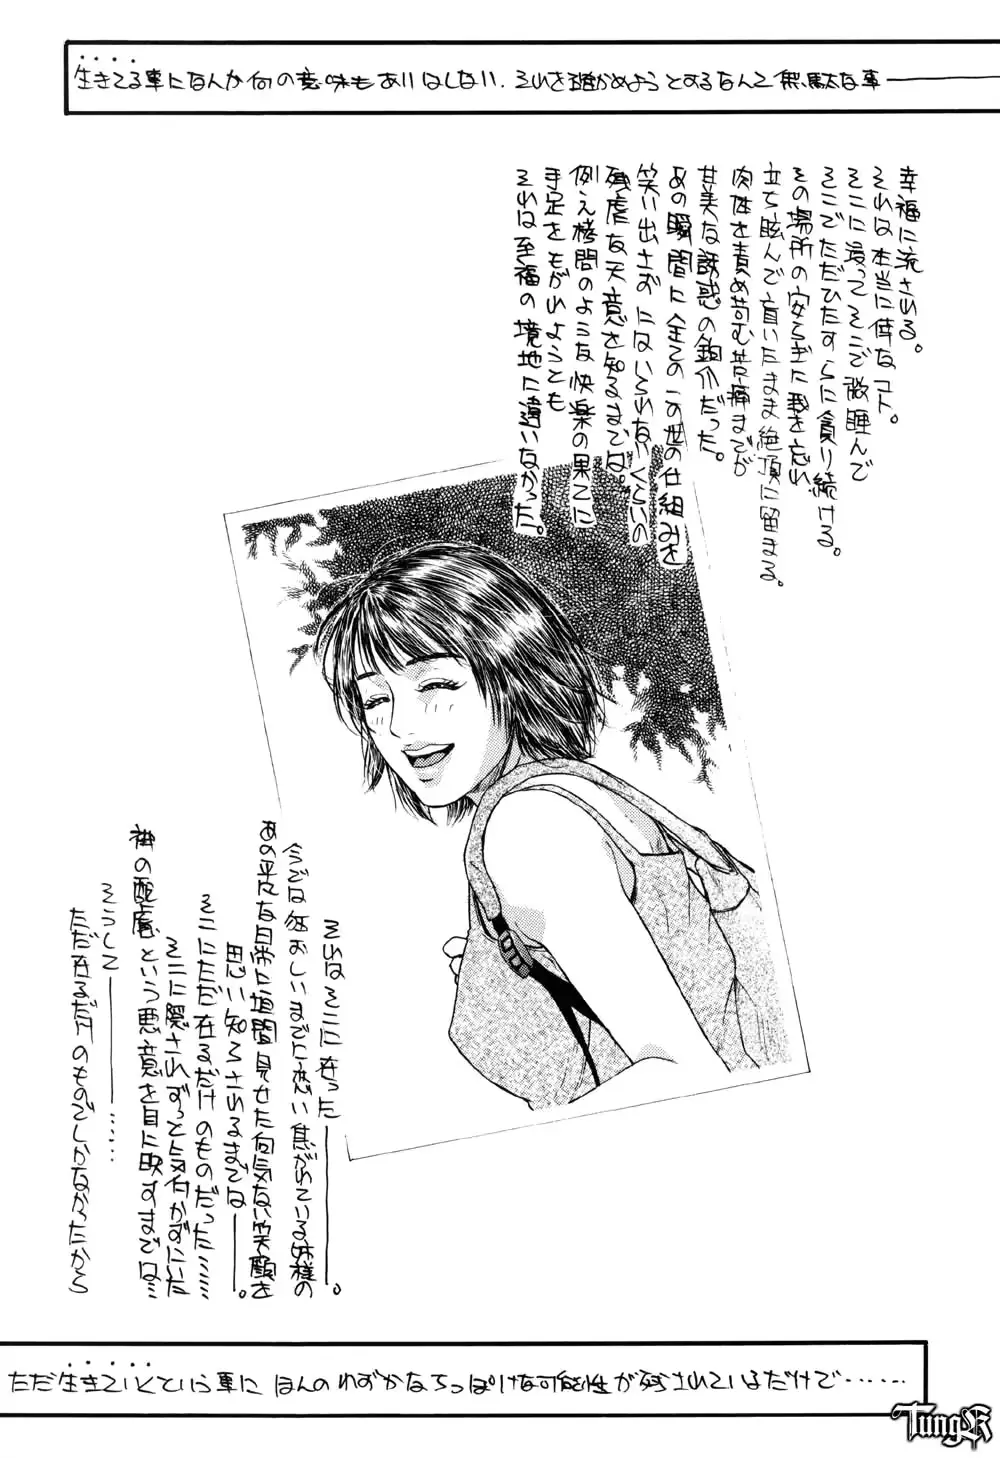 生きてる事になんか何の意味もありはしない．それを確かめようとするなんて無駄な事――
幸福に流される。
それは本当に倖なコト。
そこに浸ってそこで微睡んで
そこでただひたすらに貪り続ける。
その場所の安らぎに我を忘れ
立ち眩んで盲いたまま絶頂に留まる。
肉体を責め苛む苦痛までが
甘美な誘惑の鉤爪だった。
あの瞬間に全てのこの世の仕組みを
笑い出さずにいられないくらいの
残虐な天意を知るまでは。
例え拷問のような快楽の果てに
手足をもがれようとも
それは至福の境地に違いなかった。
それはそこに在った――――。
今では狂おしいまでに恋い焦がれている姉様の
あの平凡な日常に垣間見せた何気ない笑顔を
思い知らされるまでは――。
そこにただ在るだけのものだった‥‥‥
そこに隠されずっと気付かずにいた
神の配慮という悪意を目に映すまでは…
そうして――――‥‥‥
ただ在るだけのものでしかなかったから
ただ生きていくという事に ほんのわずかなちっぽけな可能性が残されているだけで‥‥‥
TungK